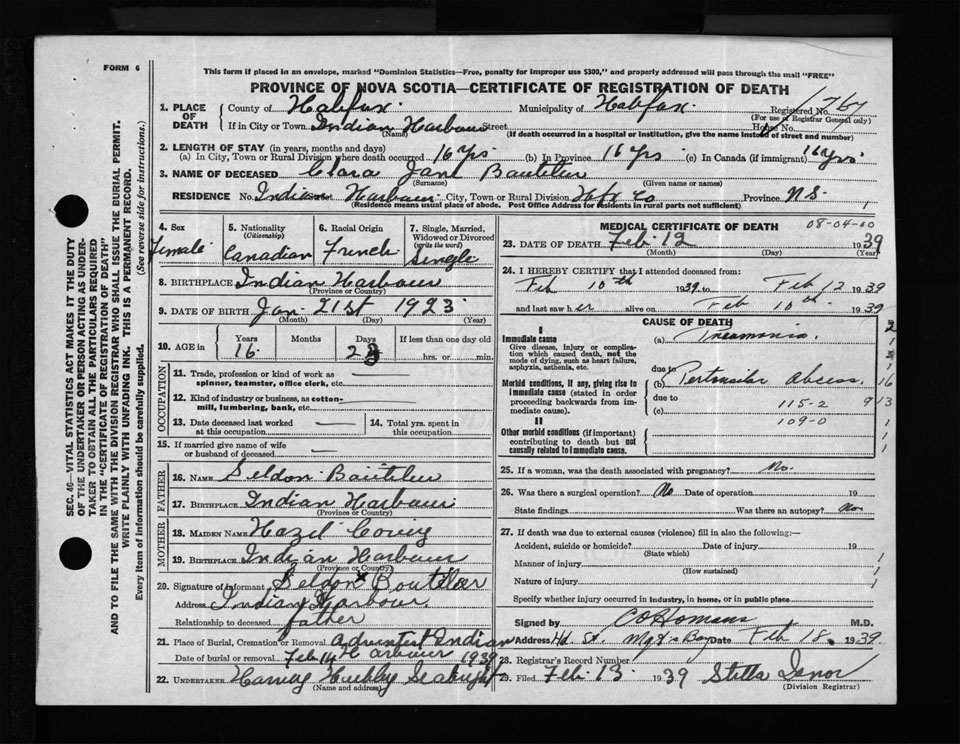 FORM 6
This form if placed in an envelope, marked "Dominion Statistics—Free, penalty for improper use $300," and properly addressed will pass through the mail "FREE"
PROVINCE OF NOVA SCOTIA—CERTIFICATE OF REGISTRATION OF DEATH
1. PLACE OF DEATH County of Halifax. Municipality of Halifax. Registered No.
(For use of Registrar General only)
If in City or Town Indian Harbour Street House No.
(Name) (If death occurred in a hospital or institution, give the name instead of street and number)
2. LENGTH OF STAY (in years, months and days)
(a) In City, Town or Rural Division where death occurred 16 yrs (b) In Province 16 yrs (c) In Canada (if immigrant) 16 yrs
3. NAME OF DECEASED Clara Jane Boutilier
(Surname) (Given name or names)
RESIDENCE No. Indian Harbour City, Town or Rural Division Hfx Co Province N.S.
(Residence means usual place of abode. Post Office Address for residents in rural parts not sufficient)
4. Sex Female
5. Nationality (Citizenship) Canadian
6. Racial Origin French
7. Single, Married, Widowed or Divorced (write the word) Single
8. BIRTHPLACE Indian Harbour
(Province or Country)
9. DATE OF BIRTH Jan. 21st 1923
(Month) (Day) (Year)
10. AGE in Years 16 Months Days If less than one day old hrs. or min.
OCCUPATION
11. Trade, profession or kind of work as spinner, teamster, office clerk, etc. —
12. Kind of industry or business, as cotton-mill, lumbering, bank, etc. —
13. Date deceased last worked at this occupation —
14. Total yrs. spent in this occupation.
15. If married give name of wife or husband of deceased —
FATHER
16. NAME Seldon Boutilier
17. BIRTHPLACE Indian Harbour
(Province or Country)
MOTHER
18. MAIDEN NAME Hazel
19. BIRTHPLACE Indian Harbour
(Province or Country)
20. Signature of informant Seldon X Boutilier
Address Indian Harbour.
Relationship to deceased father
21. Place of Burial, Cremation or Removal Adventist Indian Harbour
Date of burial or removal Feb 14 1939
22. UNDERTAKER Harvey Hubley Seabright
(Name and address)
MEDICAL CERTIFICATE OF DEATH 08-04-00
23. DATE OF DEATH Feb. 12 1939
(Month) (Day) (Year)
24. I HEREBY CERTIFY that I attended deceased from:
Feb 10th 1939 to Feb 12 1939
and last saw her alive on Feb 10th 1939
CAUSE OF DEATH
I
Immediate cause
Give disease, injury or complication which caused death, not the mode of dying, such as heart failure, asphyxia, asthenia, etc.
(a) Pneumonia.
due to
Morbid conditions, if any, giving rise to Immediate cause (stated in order proceeding backwards from immediate cause).
(b) Peritonsilar Abcess.
due to 115-2
(c) 109-0
II
Other morbid conditions (if important) contributing to death but not causally related to Immediate cause.
25. If a woman, was the death associated with pregnancy? No.
26. Was there a surgical operation? No Date of operation 19
State findings Was there an autopsy? No.
27. If death was due to external causes (violence) fill in also the following:—
Accident, suicide or homicide? Date of injury 19
(State which)
Manner of injury
(How sustained)
Nature of injury
Specify whether injury occurred in industry, in home, or in public place
Signed by C O Homans M.D.
Address Hd. St. Mgt's Bay Date Feb 18. 1939
28. Registrar's Record Number
29. Filed Feb. 13 1939 Stella
(Division Registrar)
SEC. 46—VITAL STATISTICS ACT MAKES IT THE DUTY
OF THE UNDERTAKER OR PERSON ACTING AS UNDER-
TAKER TO OBTAIN ALL THE PARTICULARS REQUIRED
IN THE "CERTIFICATE OF REGISTRATION OF DEATH"
AND TO FILE THE SAME WITH THE DIVISION REGISTRAR WHO SHALL ISSUE THE BURIAL PERMIT.
WRITE PLAINLY WITH UNFADING INK. THIS IS A PERMANENT RECORD.
Every item of information should be carefully supplied. (See reverse side for instructions.)